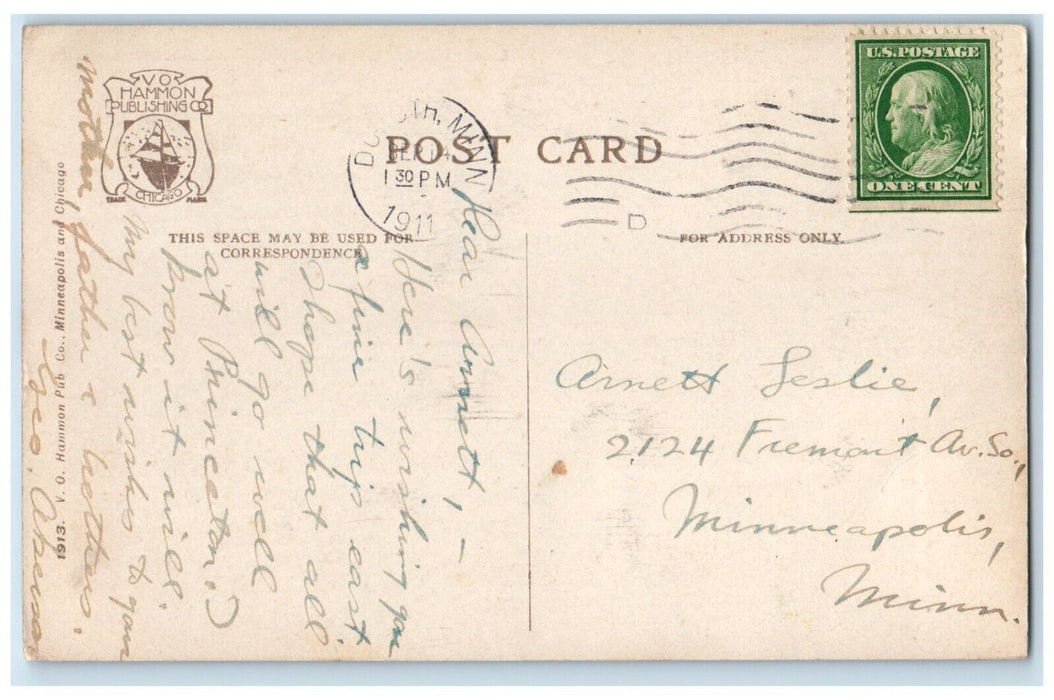 V.O.
HAMMON
PUBLISHING CO
CHICAGO
TRADE MARK
POST CARD
DULUTH, MINN
SEP 14
1 30 PM
1911
D
U.S. POSTAGE
ONE CENT
THIS SPACE MAY BE USED FOR
CORRESPONDENCE
FOR ADDRESS ONLY
1913. V. O. Hammon Pub Co., Minneapolis and Chicago
Dear Arnett, —
Here's wishing you
a fine trip east
I hope that all
will go well
at Princeton.
I know it will.
My best wishes to your
mother, father & brothers.
Geo.
Arnett Leslie,
2124 Fremont Av. So.,
Minneapolis,
Minn.